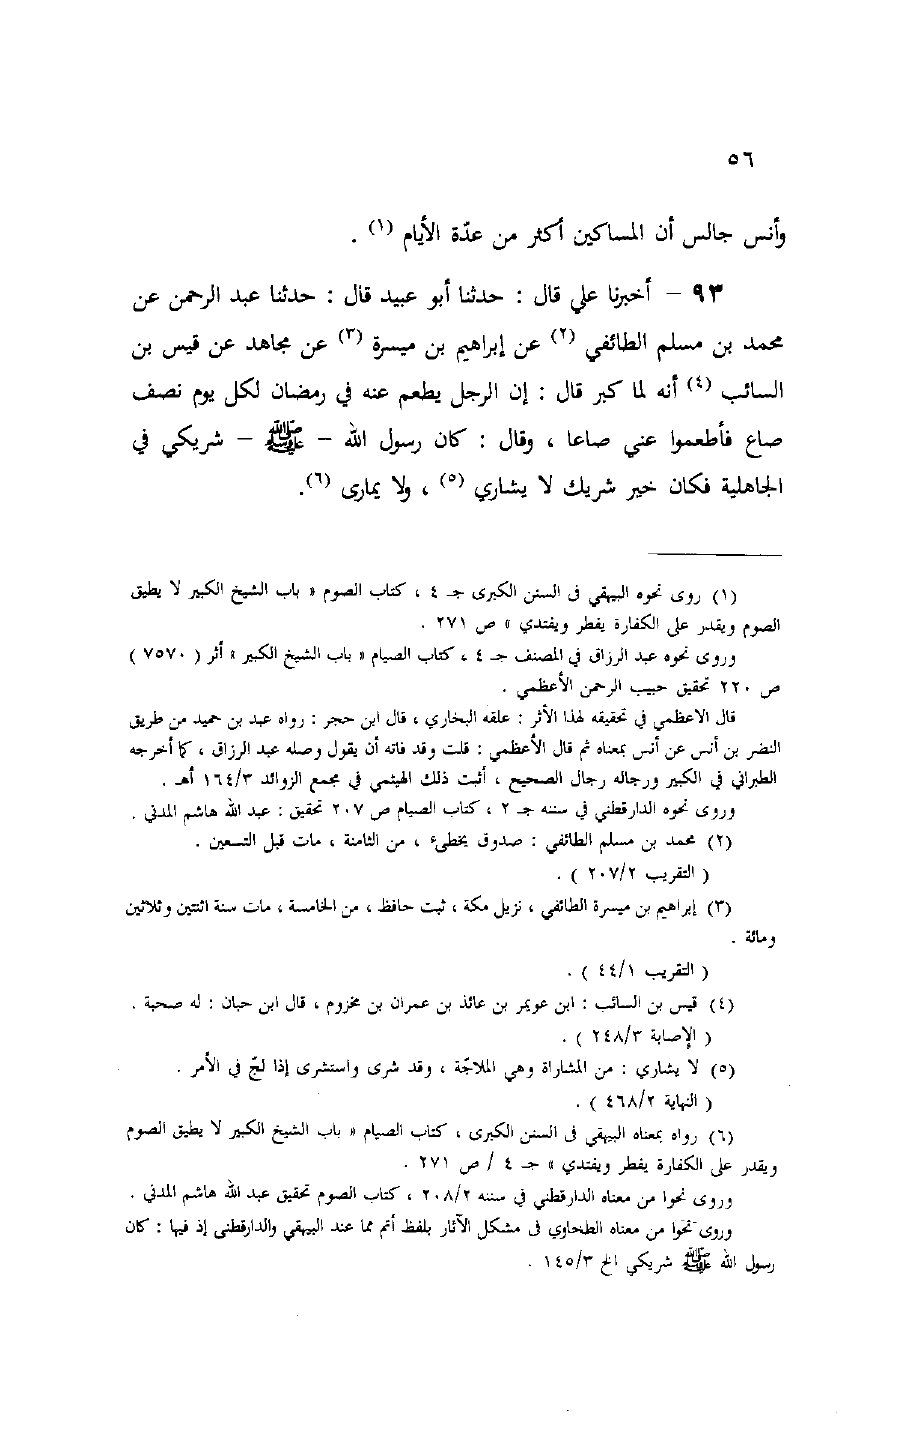 ٥٦
وأنس جالس أن المساكين أكثر من عدّة الأيام (١) .
٩٣ – أخبرنا علي قال : حدثنا أبو عبيد قال : حدثنا عبد الرحمن عن
محمد بن مسلم الطائفي (٢) عن إبراهيم بن ميسرة (٣) عن مجاهد عن قيس بن
السائب (٤) أنه لما كبر قال : إن الرجل يطعم عنه في رمضان لكل يوم نصف
صاع فأطعموا عني صاعا ، وقال : كان رسول الله – ﷺ – شريكي في
الجاهلية فكان خير شريك لا يشاري (٥) ، ولا يمارى (٦).
(١) روى نحوه البيهقي فى السنن الكبرى جـ ٤ ، كتاب الصوم « باب الشيخ الكبير لا يطيق
الصوم ويقدر على الكفارة يفطر ويفتدي » ص ٢٧١ .
وروى نحوه عبد الرزاق في المصنف جـ ٤ ، كتاب الصيام « باب الشيخ الكبير » أثر ( ٧٥٧٠ )
ص ٢٢٠ تحقيق حبيب الرحمن الأعظمي .
قال الاعظمي في تحقيقه لهذا الأثر : علقه البخاري ، قال ابن حجر : رواه عبد بن حميد من طريق
النضر بن أنس عن أنس بمعناه ثم قال الأعظمي : قلت وقد فاته أن يقول وصله عبد الرزاق ، كما أخرجه
الطبراني في الكبير ورجاله رجال الصحيح ، أثبت ذلك الهيثمي في مجمع الزوائد ١٦٤/٣ أهـ .
وروى نحوه الدارقطني في سننه جـ ٢ ، كتاب الصيام ص ٢٠٧ تحقيق : عبد الله هاشم المدني .
(٢) محمد بن مسلم الطائفي : صدوق يخطىء ، من الثامنة ، مات قبل التسعين .
( التقريب ٢٠٧/٢ ) .
(٣) إبراهيم بن ميسرة الطائفي ، نزيل مكة ، ثبت حافظ ، من الخامسة ، مات سنة اثنتين وثلاثين
ومائة .
( التقريب ٤٤/١ ) .
(٤) قيس بن السائب : ابن عويمر بن عائذ بن عمران بن مخزوم ، قال ابن حبان : له صحبة .
( الإصابة ٢٤٨/٣ ) .
(٥) لا يشاري : من المشاراة وهي الملاجّة ، وقد شرى واستشرى إذا لجّ في الأمر .
( النهاية ٤٦٨/٢ ) .
(٦) رواه بمعناه البيهقي فى السنن الكبرى ، كتاب الصيام « باب الشيخ الكبير لا يطيق الصوم
ويقدر على الكفارة يفطر ويفتدي » جـ ٤ / ص ٢٧١ .
وروى نحوا من معناه الدارقطني في سننه ٢٠٨/٢ ، كتاب الصوم تحقيق عبد الله هاشم المدني .
وروى نحوا من معناه الطحاوي فى مشكل الآثار بلفظ أتم مما عند البيهقي والدارقطنى إذ فيها : كان
رسول الله ﷺ شريكي الخ ١٤٥/٣ .